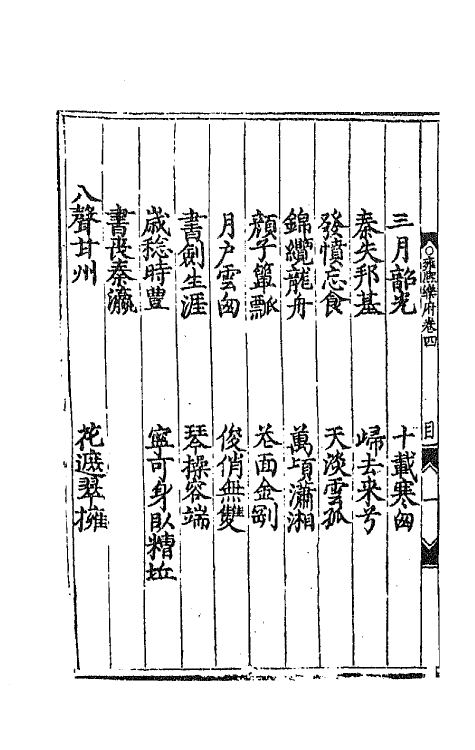 雍熙樂府卷四 目 一
三月韶光 十載寒囪
秦失邦基 歸去來兮
發憤忘食 天淡雲孤
錦纜龍舟 萬頃瀟湘
顏子簞瓢 面金剛
月戶雲囪 俊俏無雙
書劍生涯 琴操容端
歲稔時豊 寧可身臥糟丘
書喪秦瀛
八聲甘州 花遮翠擁